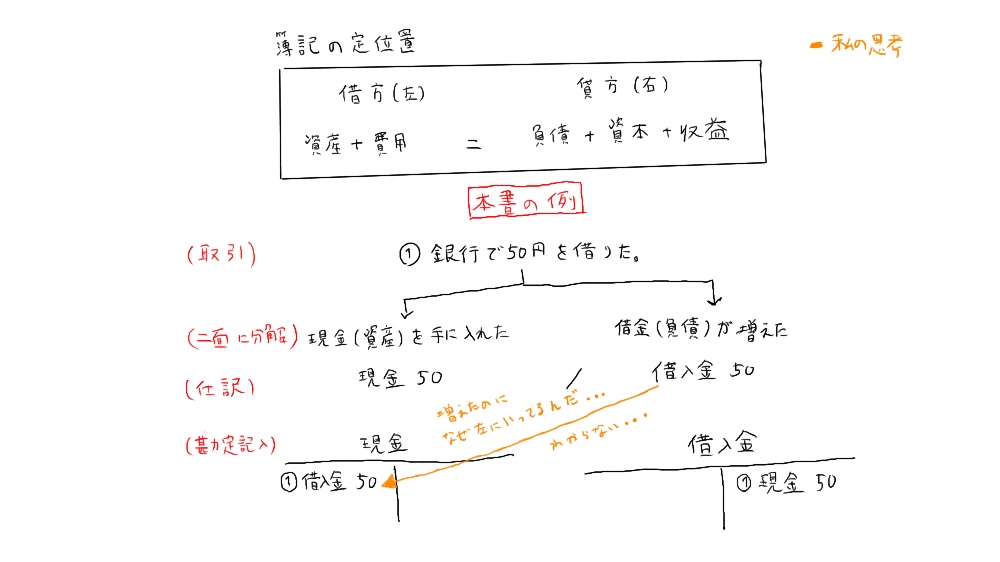 簿記の定位置
- 私の思考
借方(左) 貸方(右)
資産+費用 = 負債+資本+収益
本書の例
(取引) ① 銀行で50円を借りた。
(二面に分解) 現金(資産)を手に入れた 借金(負債)が増えた
(仕訳) 現金 50 / 借入金 50
増えたのに
なぜ左にいってるんだ・・・
わからない・・・
(勘定記入) 現金 借入金
①借入金 50 ①現金 50